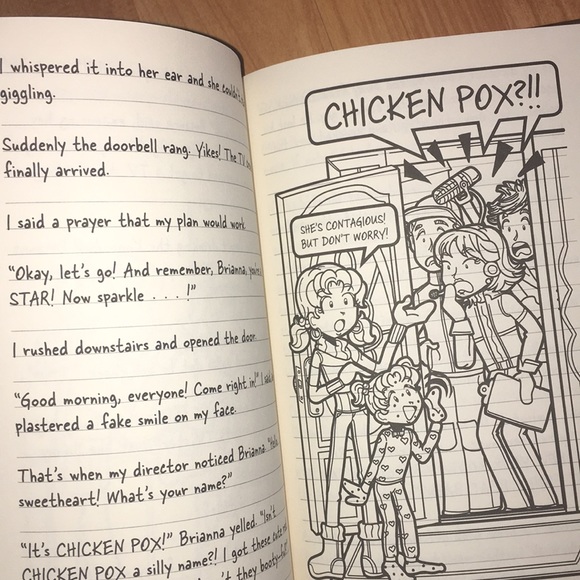 I whispered it into her ear and she
giggling.
Suddenly the doorbell rang. Yikes! The TV
finally arrived.
I said a prayer that my plan would work.
"Okay, let's go! And remember, Brianna, you're a
STAR! Now sparkle . . . !"
I rushed downstairs and opened the door.
"Good morning, everyone! Come right in!" I
plastered a fake smile on my face.
That's when my director noticed Brianna.
sweetheart! What's your name?"
"It's CHICKEN POX!" Brianna yelled. "Isn't
CHICKEN POX a silly name?! I got these cute
they
CHICKEN POX?!!
SHE'S CONTAGIOUS!
BUT DON'T WORRY!